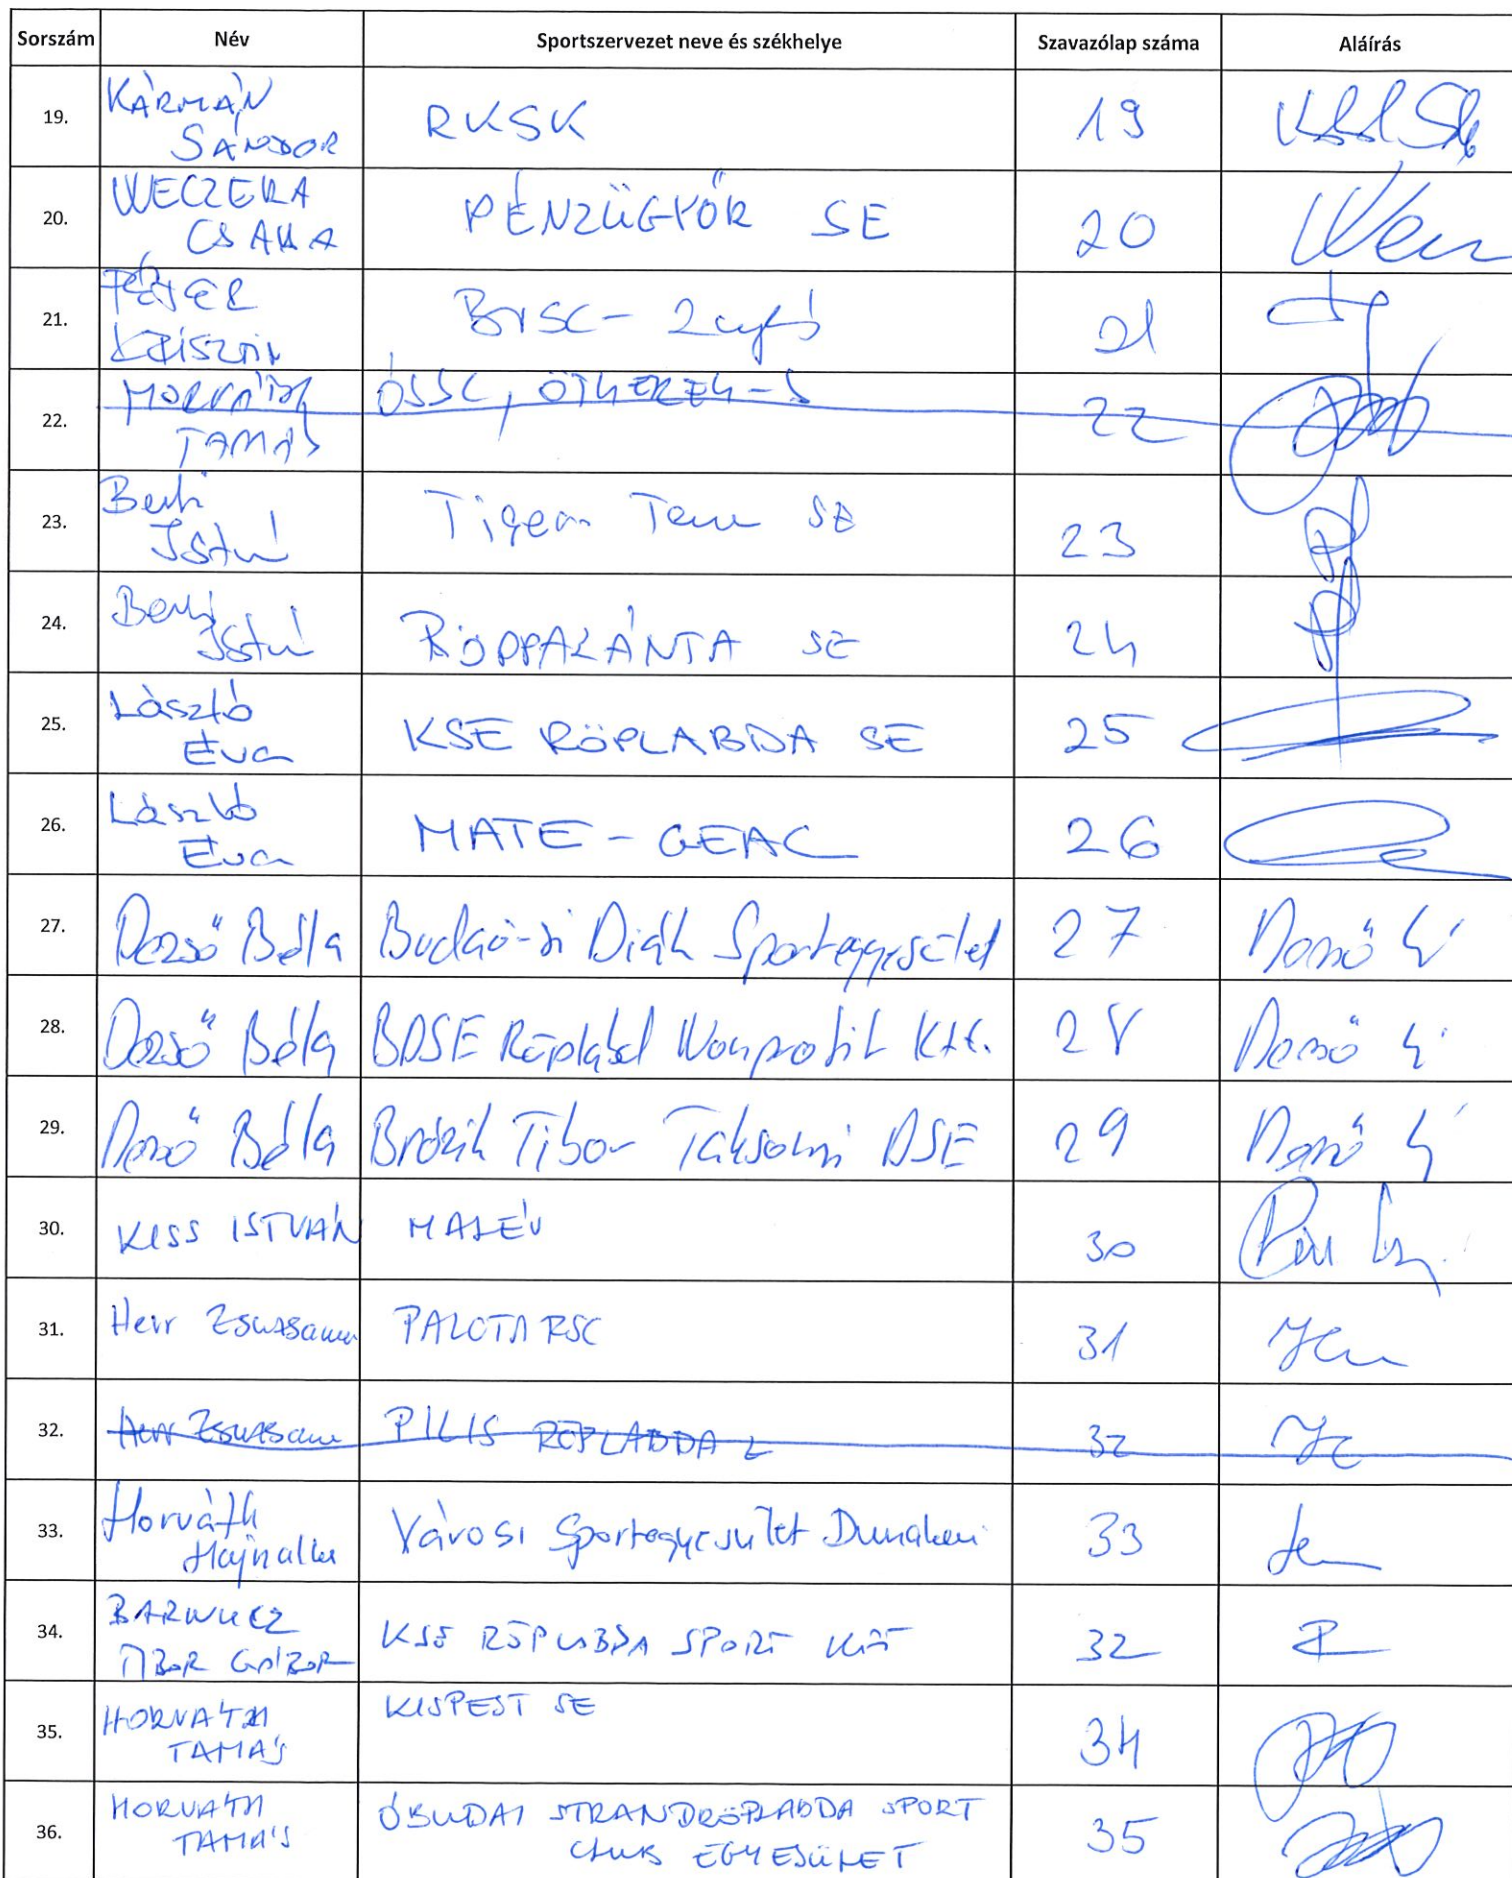 Sorszám Név Sportszervezet neve és székhelye Szavazólap száma Aláírás
19. KÁRMÁN SÁNDOR RKSK 19
20. WECZERA CSABA PÉNZÜGYŐR SE 20
21. PÉTER KRISZTIÁN BVSC - Zugló 21
22. HORVÁTH TAMÁS ÓSSC, 22
23. István SE 23
24. István RÖPPALÁNTA SE 24
25. László Éva KSE RÖPLABDA SE 25
26. László Éva MATE - GEAC 26
27. Dezső Béla Diák Sportegyesület 27 Dezső
28. Dezső Béla BDSE Röplabd Nonprofit Kft. 28 Dezső
29. Dezső Béla Brózik Tibor Taksonyi DSE 29 Dezső
30. KISS ISTVÁN MALÉV 30
31. Herr Zsuzsanna PALOTA RSC 31
32. Herr Zsuzsanna PILIS RÖPLABDA 32
33. Horváth Hajnalka Városi Sportegyesület Dunakeszi 33
34. TIBOR GÁBOR KSE RÖPLABDA SPORT Kft 32
35. HORVÁTH TAMÁS KISPEST SE 34
36. HORVÁTH TAMÁS ÓBUDAI STRANDRÖPLABDA SPORT CLUB EGYESÜLET 35